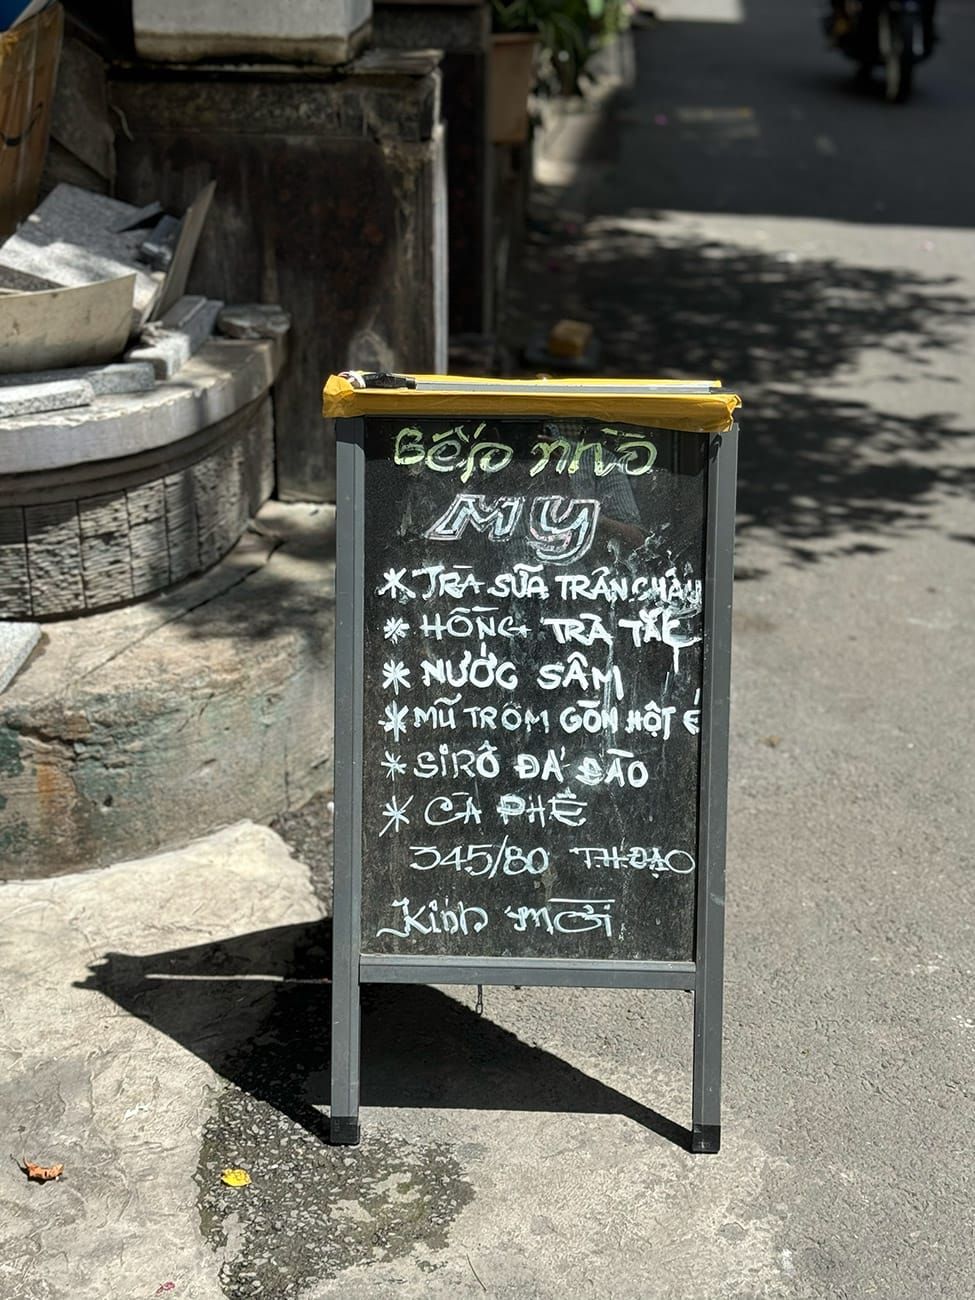 Bếp nhỏ
MY
* TRÀ SỮA TRÂN CHÂU
* HỒNG TRÀ TẮC
* NƯỚC SÂM
* MŨ TRÔM GÒN HỘT É
* SIRÔ ĐÁ BÀO
* CÀ PHÊ
345/80 T.H.ĐẠO
Kính mời